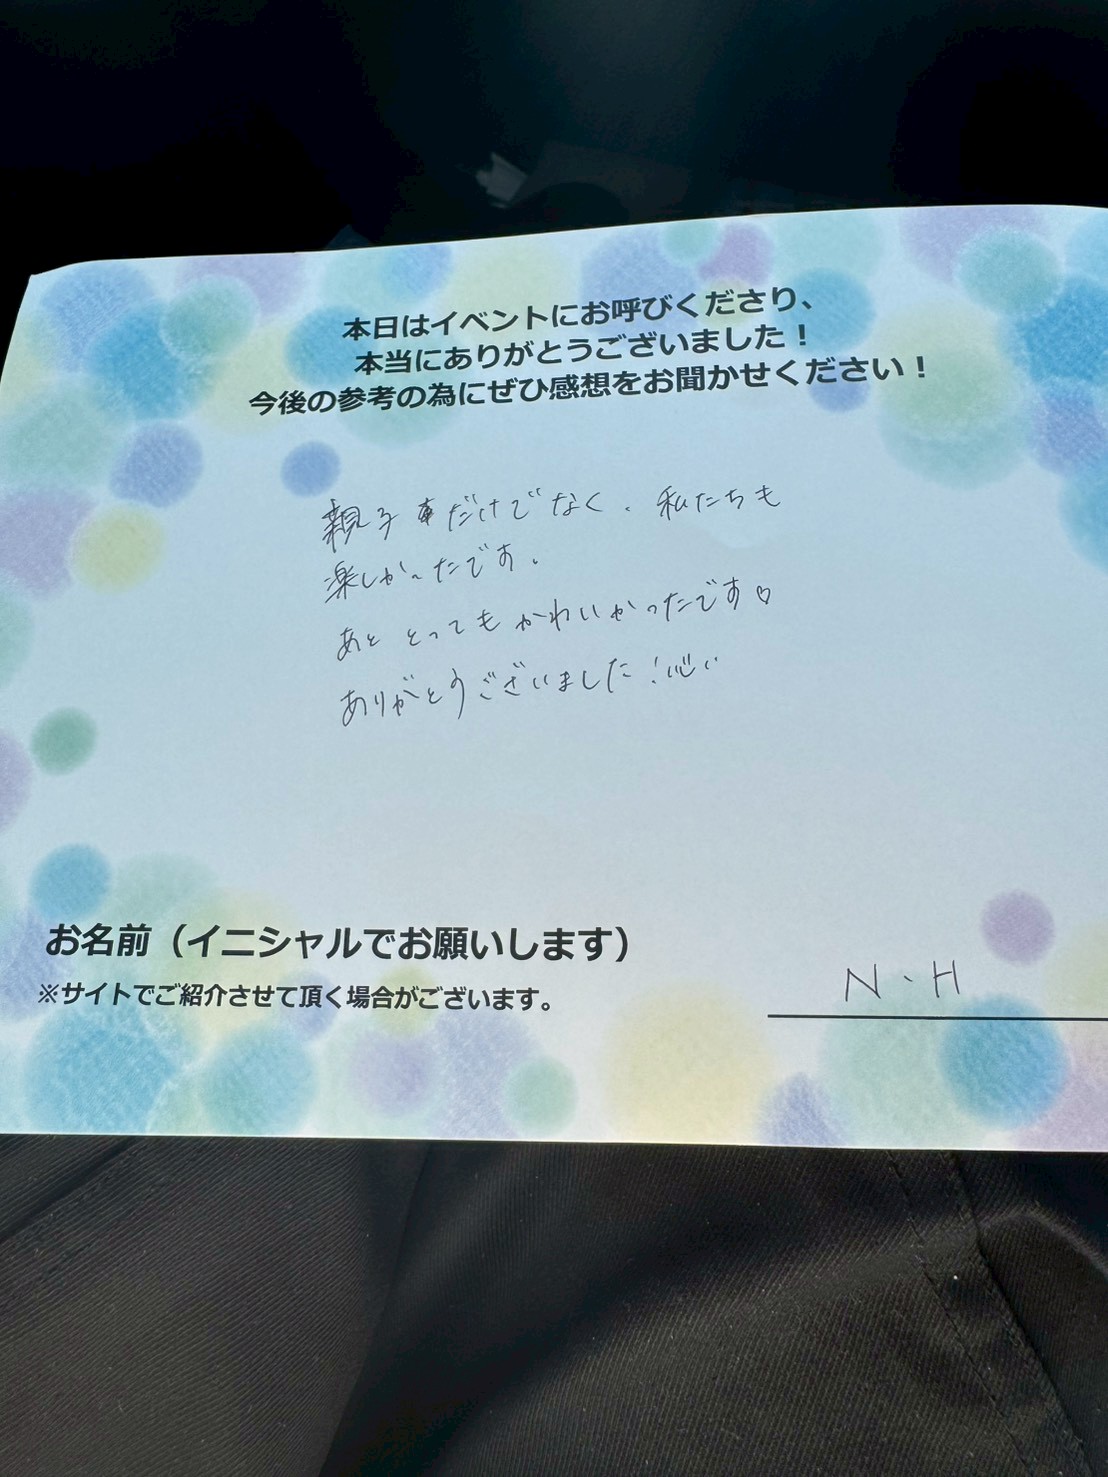 本日はイベントにお呼びくださり、
本当にありがとうございました！
今後の参考の為にぜひ感想をお聞かせください！
親子だけでなく、私たちも
楽しかったです。
あと とってもかわいかったです♡
ありがとうございました！
お名前（イニシャルでお願いします）
※サイトでご紹介させて頂く場合がございます。
N.H